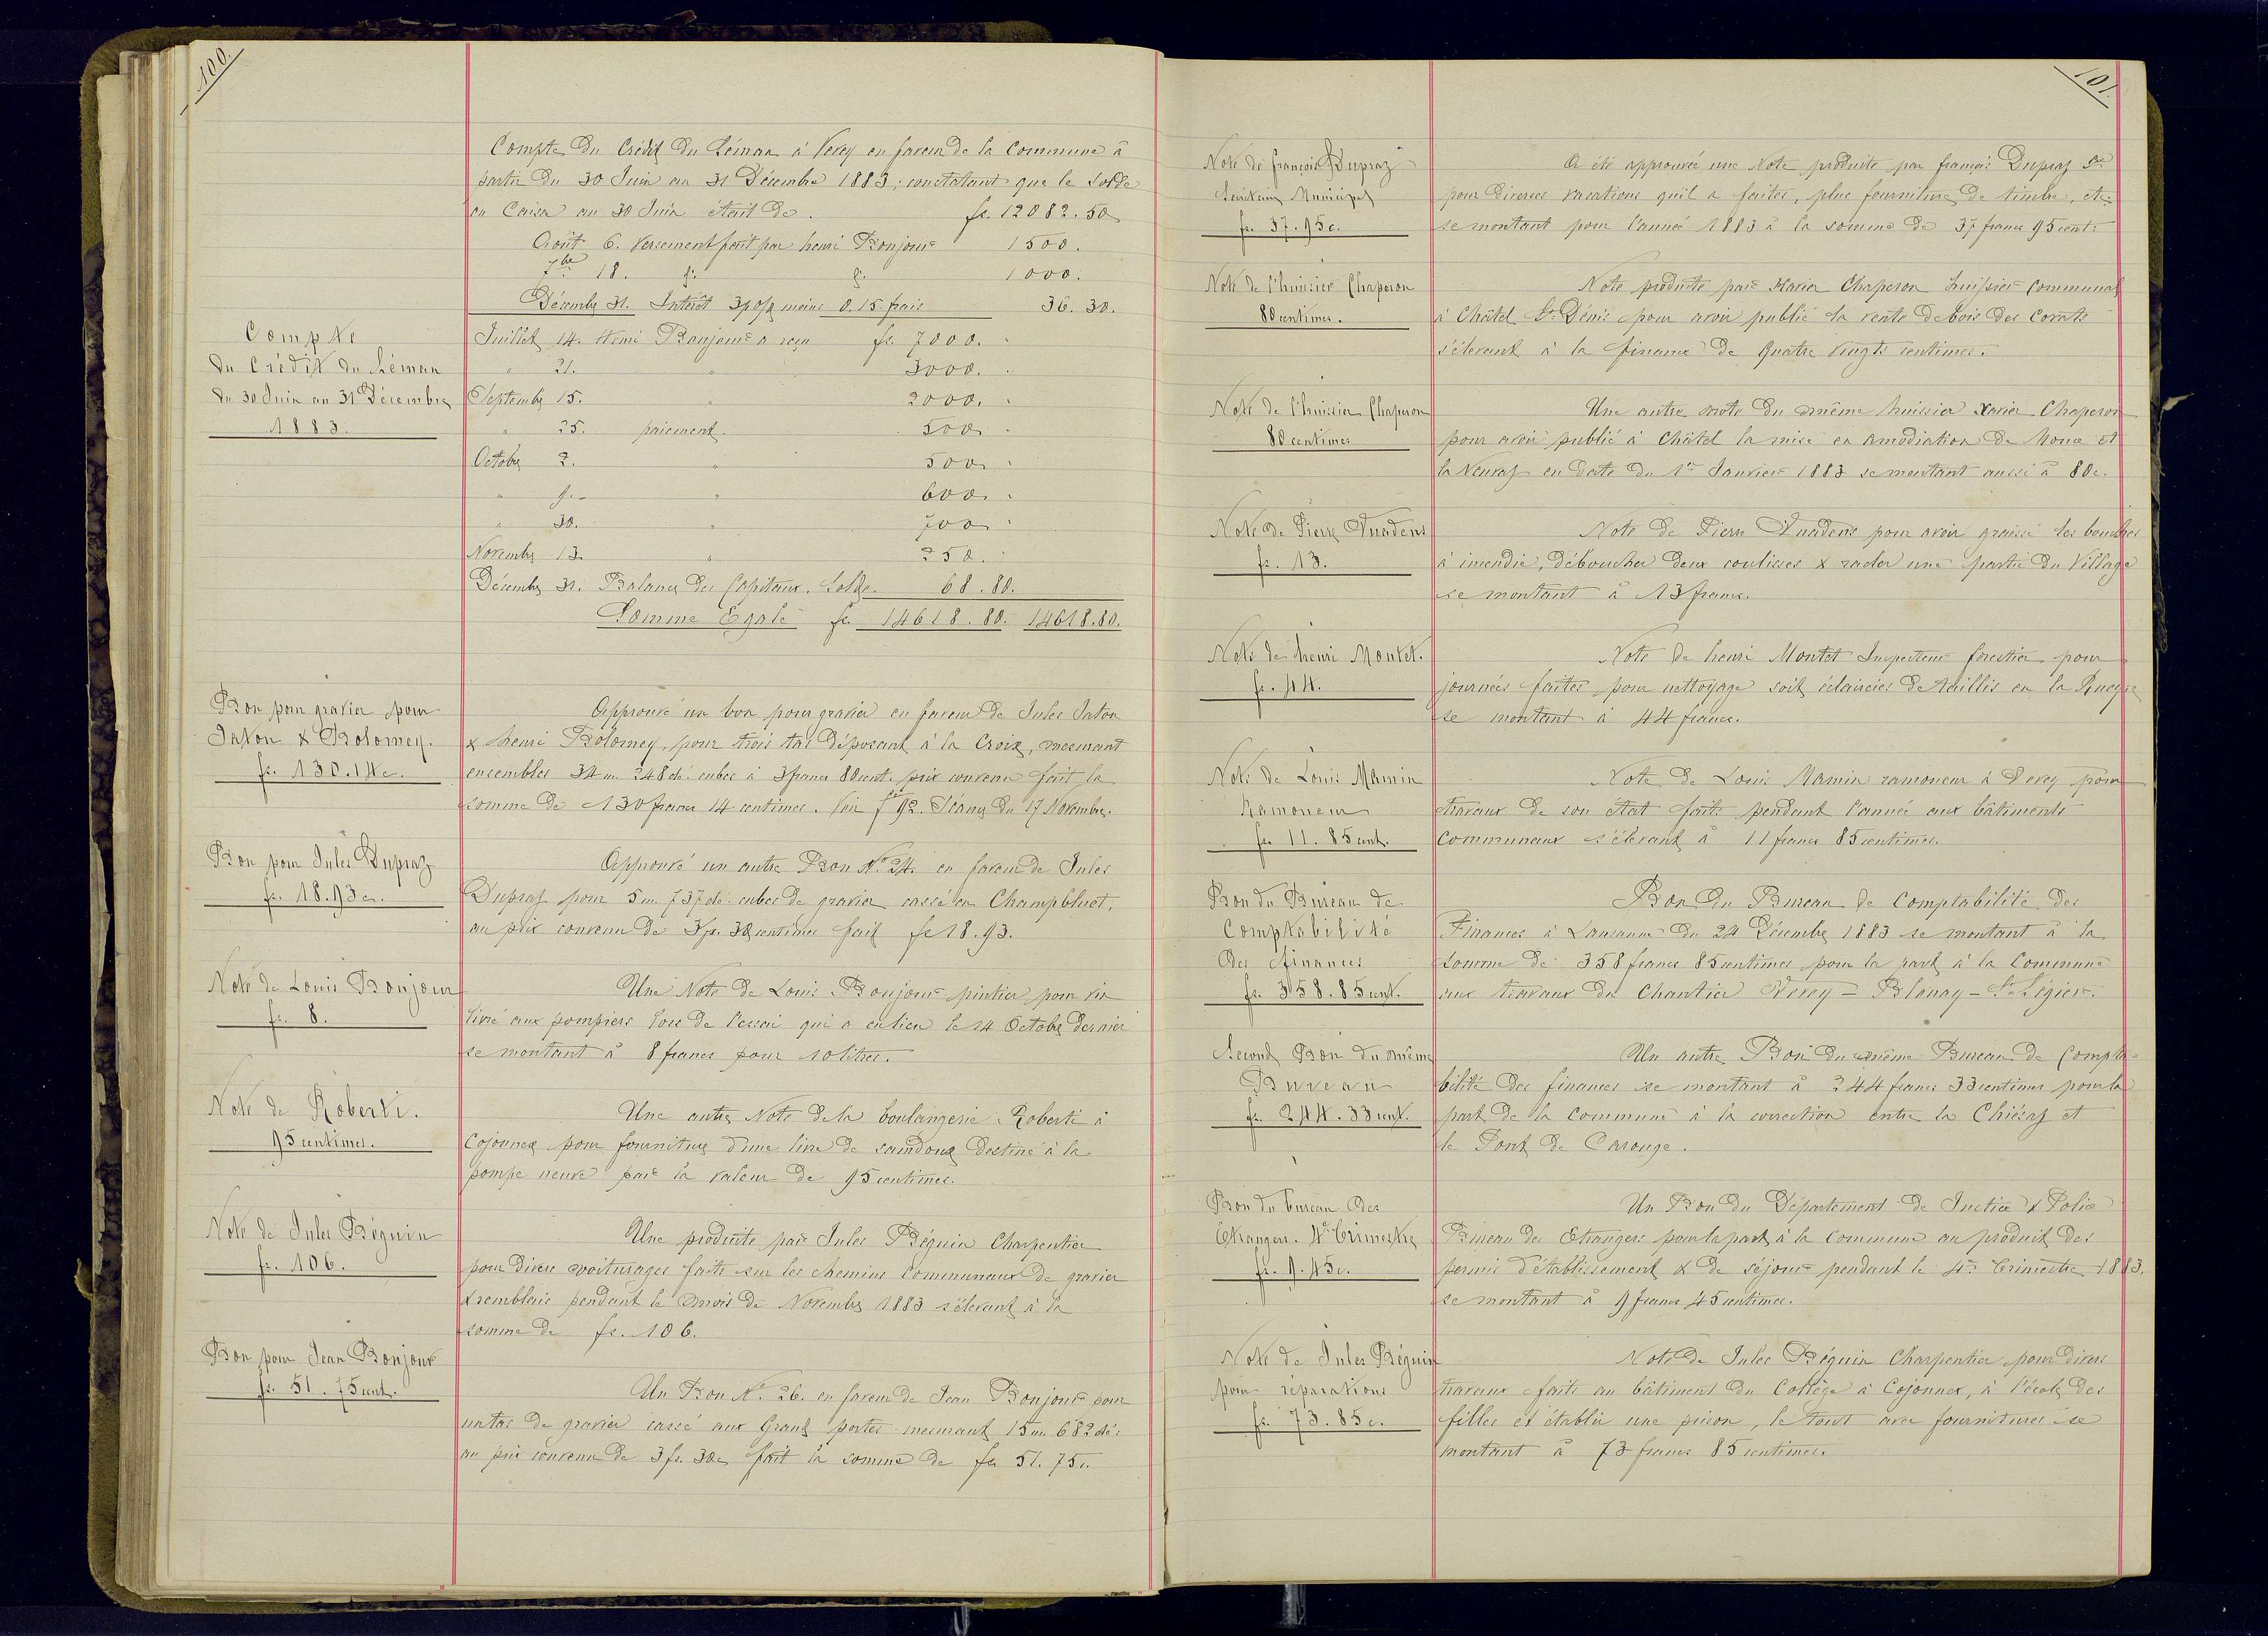 100.
Compte du Crédit du Léman à Vevey en faveur de la Commune à
partir du 30 Juin au 31 Décembre 1883, constatant que le solde
en Caisse au 30 Juin était de . fr. 12082.50
Août 6. Versement fait par henri Bonjour 1500.
7bre 18. d° d° 1000.
Décembre 31. Intérêt 3 p o/o moins 0.15 frais 36.30.
Compte
du Crédit du Léman
du 30 Juin au 31 Décembre
1883.
Juillet 14. Henri Bonjour a reçu fr. 7000.
" 21. " 3000.
Septembre 15. " 2000.
" 25. paiement. 500
Octobre 2. " 500
" 9. " 600
" 30. " 700
Novembre 13. " 250.
Décembre 31. Balance des Capitaux. Solde. 68.80.
Somme Egale fr. 14618.80. 14618.80.
Bon pour gravier pour
Jaton & Bolomey.
fr. 130.14c.
Approuvé un bon pour gravier en faveur de Jules Jaton
& henri Bolomey, pour trois tas déposant à la Croix, mesurant
ensembles 34 m 248 dé. cubes à 3 francs 80 cent. prix convenu fait la
somme de 130 francs 14 centimes. Voir f° 92. Séance du 17 Novembre.
Bon pour Jules Dupraz
fr. 18.93c.
Approuvé un autre Bon N° 24. en faveur de Jules
Dupraz pour 5 m 737 dé. cubes de gravier cassé en Champbluet,
au prix convenu de 3 fr. 30 centimes fait fr 18.93.
Note de Louis Bonjour
fr. 8.
Une Note de Louis Bonjour pintier pour vin
livré aux pompiers lors de l'essai qui a eu lieu le 14 Octobre dernier
se montant à 8 francs pour 10 litres.
Note de Roberti.
95 centimes.
Une autre Note de la boulangerie Roberti à
Cojonnex pour fourniture d'une livre de saindoux destiné à la
pompe neuve par la valeur de 95 centimes.
Note de Jules Béguin
fr. 106.
Une produite par Jules Béguin Charpentier
pour divers voiturages faits sur les chemins communaux de gravier
& remblais pendant le mois de Novembre 1883 s'élevant à la
somme de fr. 106.
Bon pour Jean Bonjour
fr. 51.75 cent.
Un Bon N° 26. en faveur de Jean Bonjour pour
un tas de gravier cassé aux Grant portes mesurant 15 m 682 dé:
au prix convenu de 3 fr. 30c fait la somme de fr 51.75c.
101.
Note de françois Dupraz
Secrétaire Municipal
fr. 37.95c.
A été approuvée une Note produite par françois Dupraz Sre
pour diverses vacations qu'il a faites, plus fournitures de timbre, etc
se montant pour l'année 1883 à la somme de 37 francs 95 cent:
Note de l'huissier Chaperon
80 centimes.
Note produite par Xavier Chaperon huissier Communal
à Châtel St Dénis pour avoir publié la vente de bois des Corats
s'élevant à la finance de Quatre Vingts centimes.
Note de l'huissier Chaperon
80 centimes
Une autre note du même huissier Xavier Chaperon
pour avoir publié à Châtel la mise en amodiation de et
la Neuvaz en date du 1er Janvier 1883 se montant aussi à 80c.
Note de Pierre Vuadens
fr. 13.
Note de Pierre Vuadens pour avoir graissé les bouches
à incendie, déboucher deux coulisses & racler une partie du Village
se montant à 13 francs.
Note de henri Montet.
fr. 44.
Note de henri Montet Inspecteur forestier pour
journées faites pour nettoyage soit éclaircies de taillis en la
se montant à 44 francs.
Note de Louis Mamin
Ramoneur
fr. 11.85 cent.
Note de Louis Mamin ramoneur à Vevey pour
travaux de son état faits pendant l'année aux bâtiments
communeaux s'élevant à 11 francs 85 centimes.
Bon du Bureau de
Comptabilité
des finances
fr. 358.85 cent.
Bon du Bureau de comptabilité des
Finances à Lausanne du 24 Décembre 1883 se montant à la
somme de 358 francs 85 centimes pour la part à la Commune
aux travaux du Chantier Vevey – Blonay – St Légier.
Second Bon du même
Bureau
fr. 244.33 cent.
Un autre Bon du même Bureau de Compta-
bilité des finances se montant à 244 francs 33 centimes pour la
part de la Commune à la correction entre la Chiésaz et
le Pont de Carouge.
Bon du bureau des
Etrangers. 4e Trimestre
fr. 9.45c.
Un Bon du Département de Justice & Police
Bureau des Etrangers pour la part à la Commune au produit des
permis d'établissement & de séjour pendant le 4e Trimestre 1883.
se montant à 9 francs 45 centimes.
Note de Jules Béguin
pour réparations
fr. 73.85c.
Note de Jules Béguin Charpentier pour divers
travaux faits au bâtiment du Collège à Cojonnex, à l'école des
filles et établir une , le tout avec fournitures se
montant à 73 francs 85 centimes.